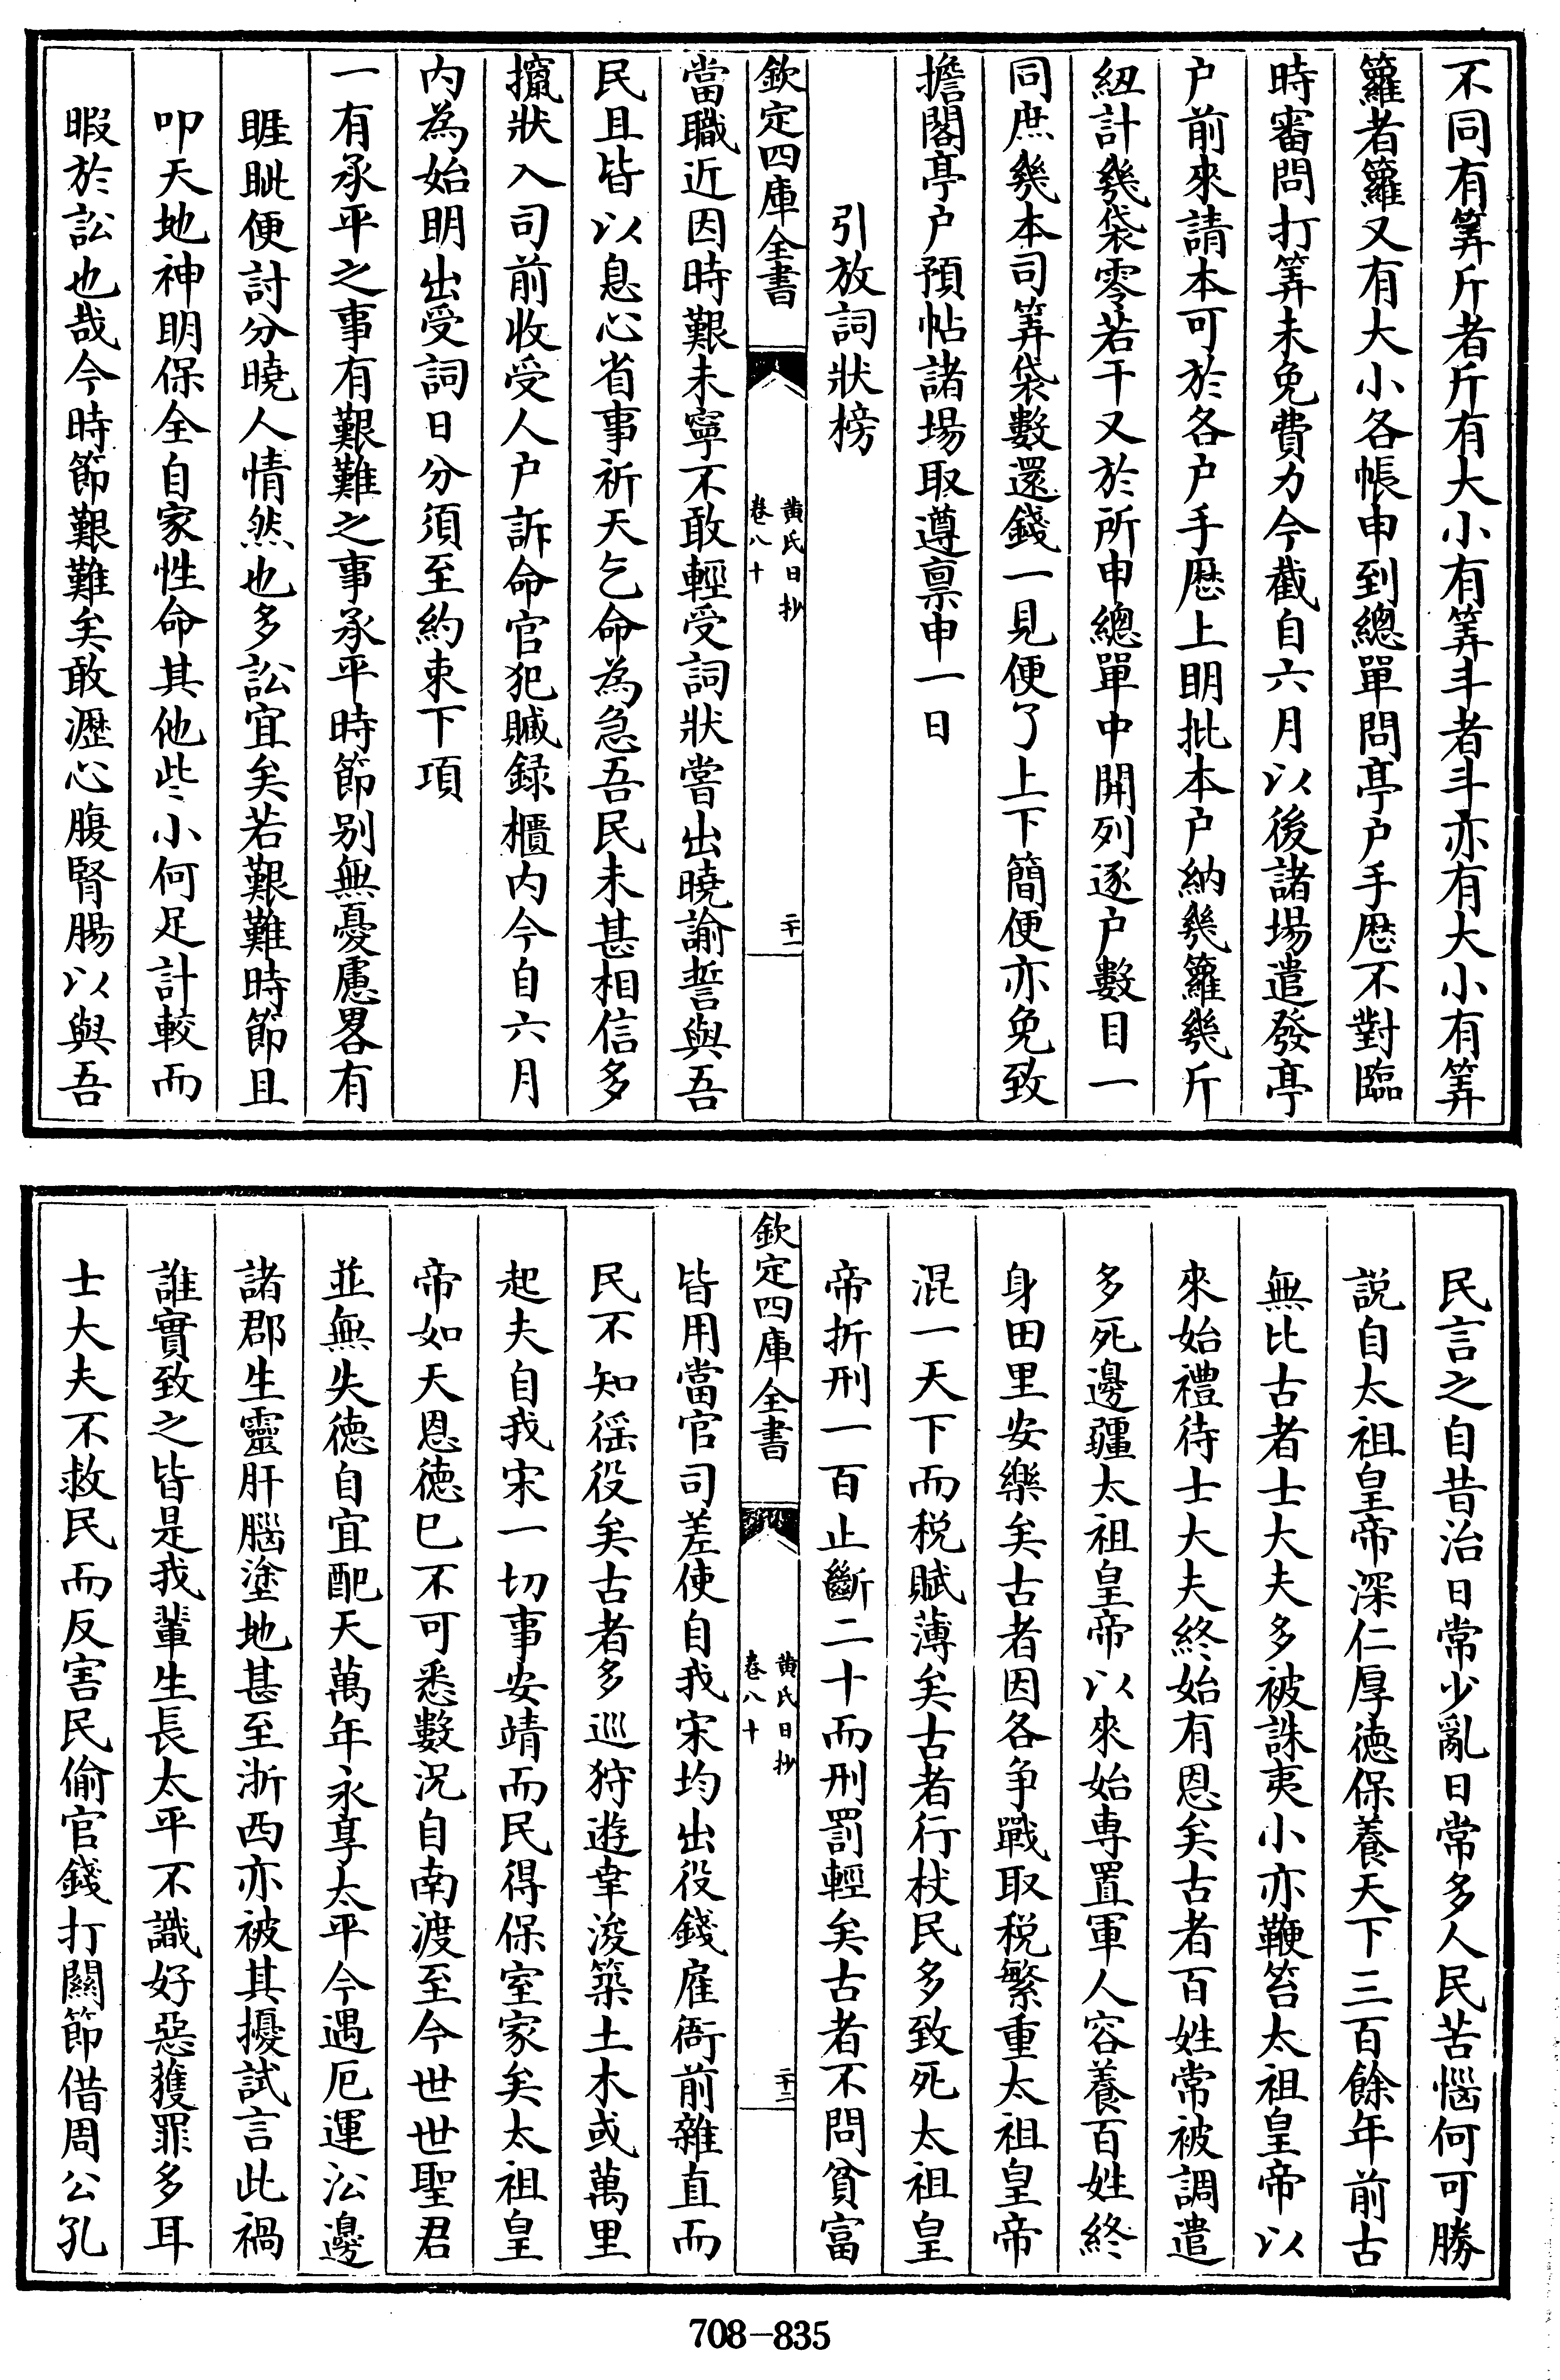 不同有筭斤者斤有大小有筭斗者斗亦有大小有筭
籮者籮又有大小各帳申到總單問亭户手厯不對臨
時審問打筭未免費力今截自六月以後諸場遣發亭
户前來請本可於各户手厯上明批本户納幾籮幾斤
紐計幾袋零若干又於所申總單中開列逐户數目一
同庶幾本司筭袋數還錢一見便了上下簡便亦免致
擔閣亭户預帖諸場取遵禀申一日
引放詞狀榜
欽定四庫全書
黄氏日抄
卷八十
二十一
當職近因時艱未寧不敢輕受詞狀嘗出曉諭誓與吾
民且皆以息心省事祈天乞命為急吾民未甚相信多
攛狀入司前收受人户訴命官犯贓録櫃内今自六月
内為始明出受詞日分須至約束下項
一有承平之事有艱難之事承平時節别無憂慮畧有
睚眦便討分曉人情然也多訟宜矣若艱難時節且
叩天地神明保全自家性命其他些小何足計較而
暇於訟也哉今時節艱難矣敢瀝心腹腎腸以與吾
民言之自昔治日常少亂日常多人民苦惱何可勝
説自太祖皇帝深仁厚徳保養天下三百餘年前古
無比古者士大夫多被誅夷小亦鞭笞太祖皇帝以
來始禮待士大夫終始有恩矣古者百姓常被調遣
多死邊疆太祖皇帝以來始専置軍人容養百姓終
身田里安樂矣古者因各争戰取税繁重太祖皇帝
混一天下而税賦薄矣古者行杖民多致死太祖皇
帝折刑一百止斷二十而刑罰輕矣古者不問貧富
欽定四庫全書
黄氏日抄
卷八十
二十二
皆用當官司差使自我宋均出役錢雇衙前雜直而
民不知徭役矣古者多巡狩遊幸浚築土木或萬里
起夫自我宋一切事安靖而民得保室家矣太祖皇
帝如天恩徳已不可悉數況自南渡至今世世聖君
並無失徳自宜配天萬年永享太平今遇厄運沿邊
諸郡生靈肝腦塗地甚至浙西亦被其擾試言此禍
誰實致之皆是我輩生長太平不識好惡獲罪多耳
士大夫不救民而反害民偷官錢打關節借周公孔
708-835